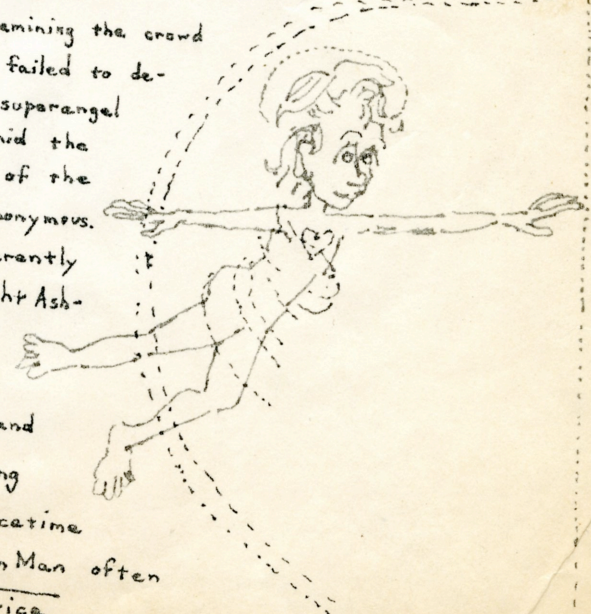 amining the crowd
failed to de-
superangel
the
of the
onymous.
rently
ht Ash-
and
ng
cetime
Man often